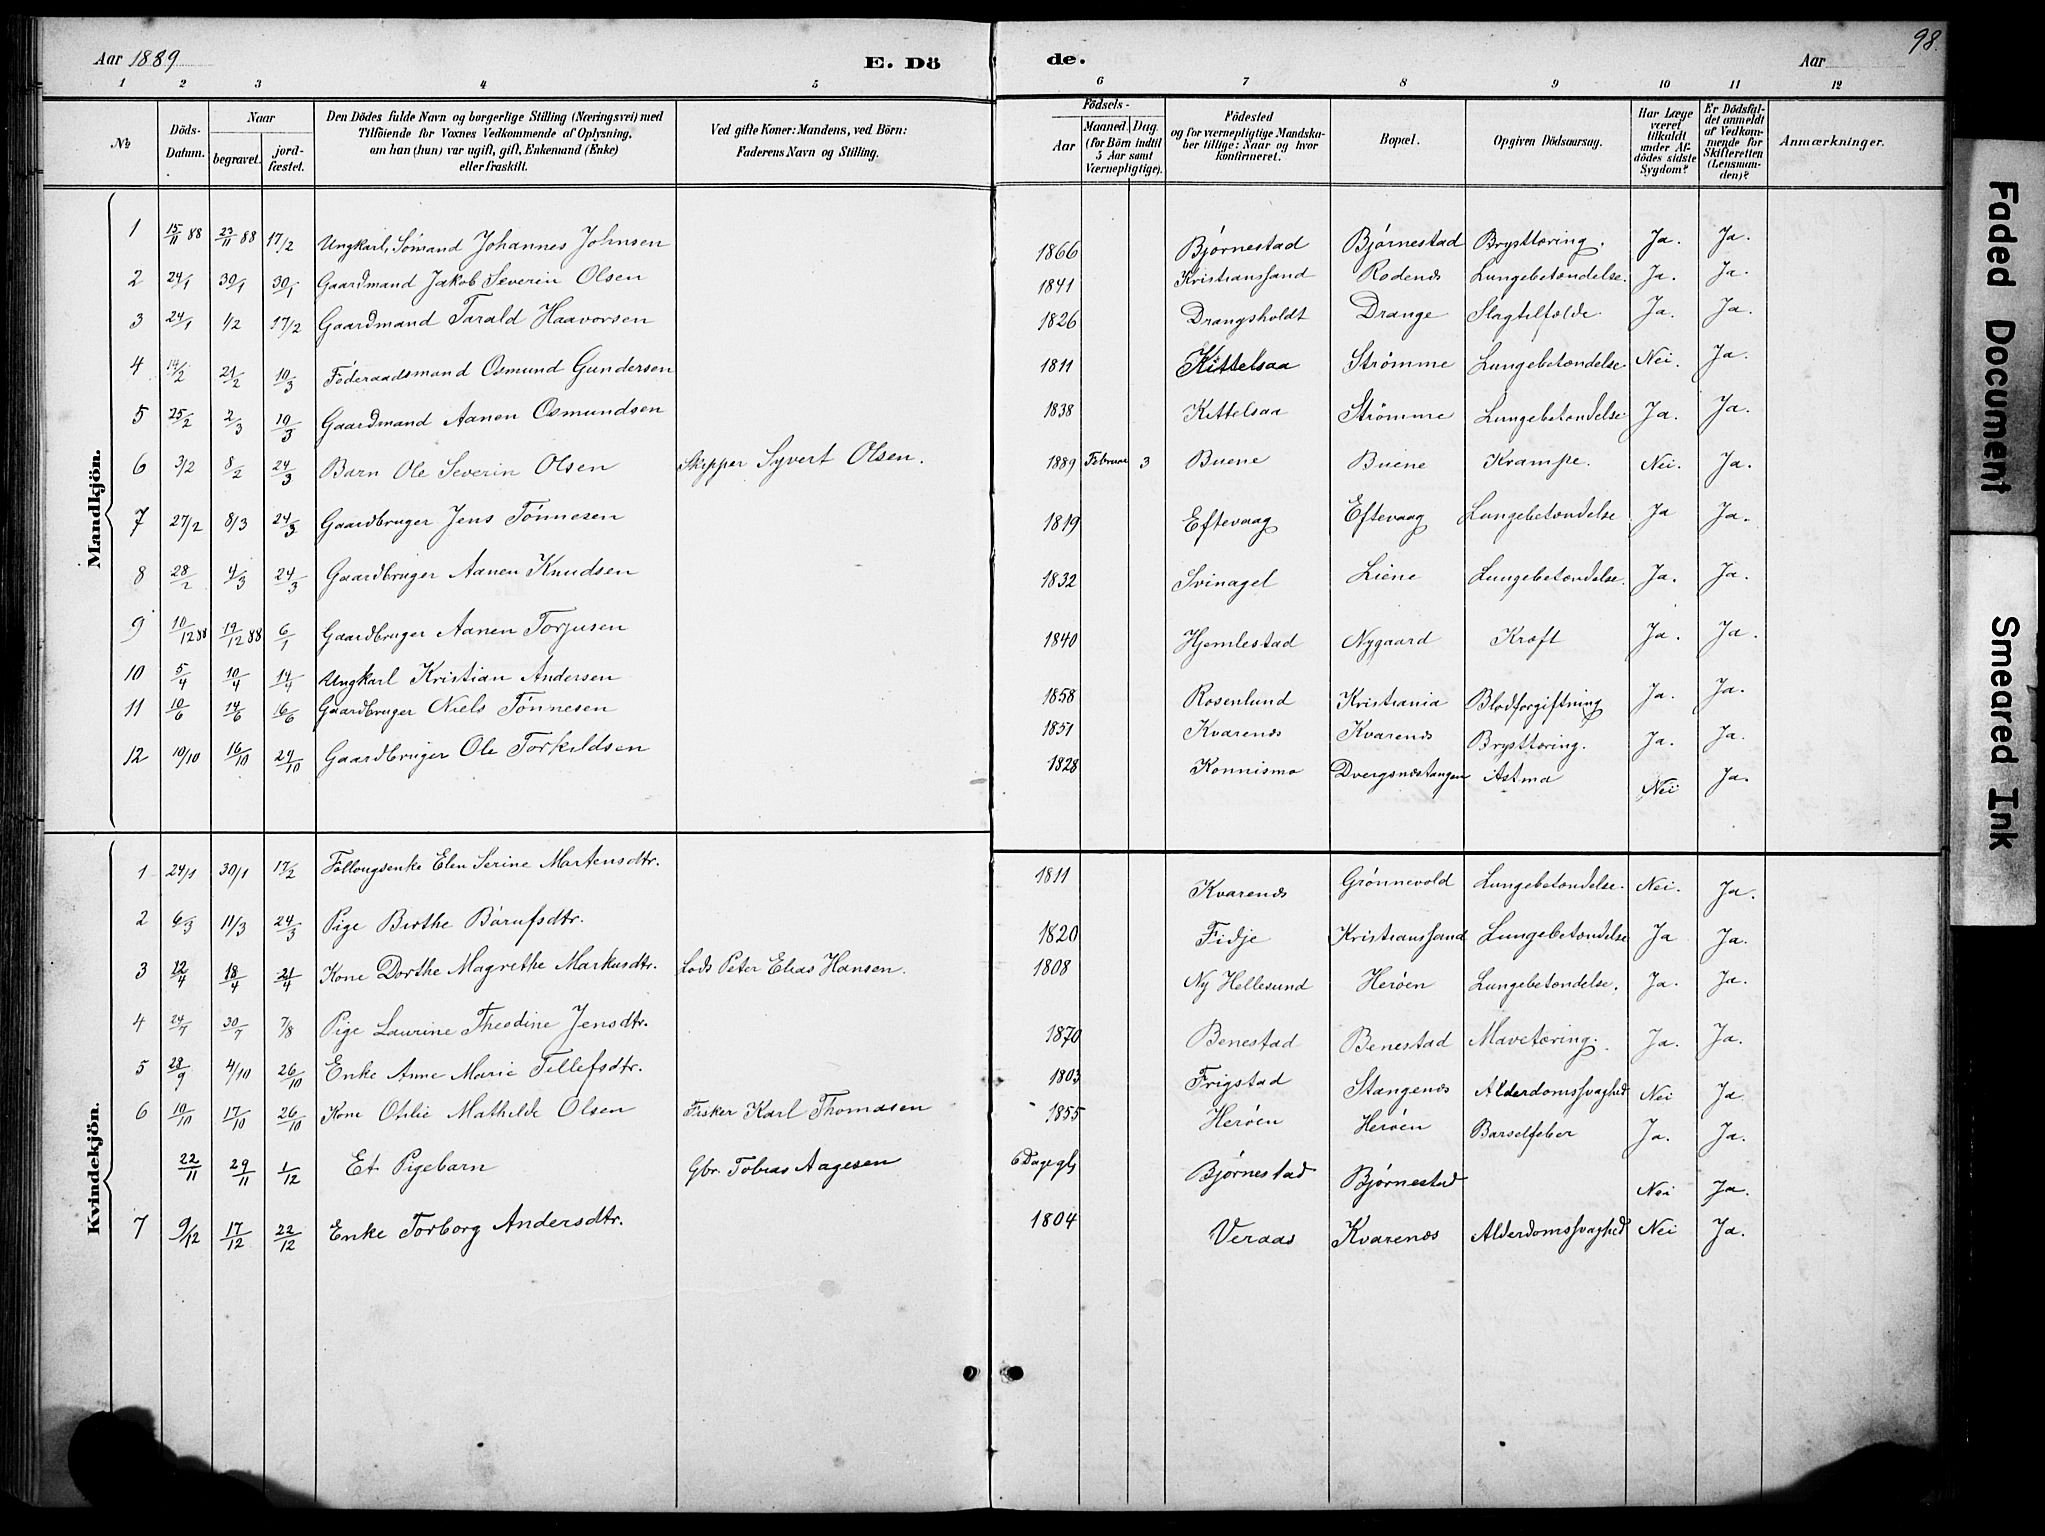 Aar 1889 E. Dö
1 2 3 4 5
№ Döds-Datum. Naar begravet. jordfæstet. Den Dödes fulde Navn og borgerlige Stilling (Næringsvei) med Tilföiende for Voxnes Vedkommende af Oplysning, om han (hun) var ugift, gift, Enkemand (Enke) eller fraskilt. Ved gifte Koner: Mandens, ved Börn: Faderens Navn og Stilling.
Mandkjön.
1 15/11 88 23/11 88 17/2 Ungkarl, Sömand Johannes Johnsen
2 24/1 30/1 30/1 Gaardmand Jakob Severin Olsen
3 24/1 1/2 17/2 Gaardmand Tarald Haavorsen
4 14/2 21/2 19/3 Föderaadsmand Osmund Gundersen
5 25/2 2/3 19/3 Gaardmand Aanen Osmundsen
6 3/2 8/2 24/3 Barn Ole Severin Olsen Skipper Syvert Olsen.
7 27/2 8/3 24/3 Gaardbruger Jens Tönnesen
8 28/2 4/3 24/3 Gaardbruger Aanen Knudsen
9 10/12 88 19/12 88 6/1 Gaardbruger Aanen Torjusen
10 5/4 10/4 14/4 Ungkarl Kristian Andersen
11 10/6 14/6 16/6 Gaardbruger Niels Tönnesen
12 10/10 16/10 24/10 Gaardbruger Ole Torkildsen
Kvindekjön.
1 24/1 30/1 17/2 Föllougsenke Elen Serine Martensdtr.
2 6/3 11/3 24/3 Pige Birthe Börufsdtr.
3 12/4 18/4 21/4 Kone Dorthe Magrethe Markusdtr. Lods Peter Elias Hansen.
4 24/7 30/7 7/8 Pige Laurine Theodine Jensdtr.
5 28/9 4/10 26/10 Enke Anne Marie Tellefsdtr.
6 10/10 17/10 26/10 Kone Otilie Mathilde Olsen Fisker Karl Thomasen
22/11 29/11 1/12 Et Pigebarn Gbr. Tobias Aagesen
7 9/12 17/12 22/12 Enke Torborg Andersdtr.
98.
de. Aar
6 7 8 9 10 11 12
Födsels- Aar Maaned Dag (for Börn indtil 5 Aar samt Værnepligtige). Födested og for værnepligtige Mandskaber tillige: Naar og hvor konfirmeret. Bopæl. Opgiven Dödsaarsag. Har Læge været tilkaldt under Afdödes sidste Sygdom? Er Dödsfaldet anmeldt af Vedkommende for Skifteretten (Lensmanden)? Anmærkninger.
1866 Bjørnestad Bjørnestad Brysttæring. Ja. Ja.
1841 Kristianssand Rodenæs Lungebetændelse. Ja. Ja.
1826 Drangsholdt Drange Slagtilfælde. Ja. Ja.
1811 Kittelsaa Strømme Lungebetændelse Nei. Ja.
1838 Kittelsaa Strømme Lungebetændelse Ja. Ja.
1889 Februar 3 Buene Buene Krampe. Nei. Ja.
1819 Eftevaag Eftevaag Lungebetændelse Ja Ja.
1832 Svinagel Liene Lungebetændelse. Ja. Ja.
1840 Hjemlestad Nygaard Kræft Ja. Ja.
1858 Rosenlund Kristiania Blodforgiftning Ja. Ja.
1851 Kvarenæs Kvarenæs Brysttæring. Ja. Ja.
1828 Konnismo Dvergsnæstangen Astma Nei Ja.
1811 Kvarenæs Grønnevold Lungebetændelse. Nei. Ja.
1820 Fidje Kristianssand Lungebetændelse Ja Ja.
1808 Ny Hellesund Herøen Lungebetændelse. Ja. Ja.
1870 Benestad Benestad Mavetæring. Ja. Ja.
1803 Frigstad Stangenæs Alderdomssvaghed Nei Ja
1855 Herøen Herøen Barselfeber Ja. Ja.
6 Dage gl. Bjørnestad Bjørnestad Nei Ja.
1804 Veraas Kvarenæs Alderdomssvaghed Nei Ja.
Faded Document
Smeared Ink